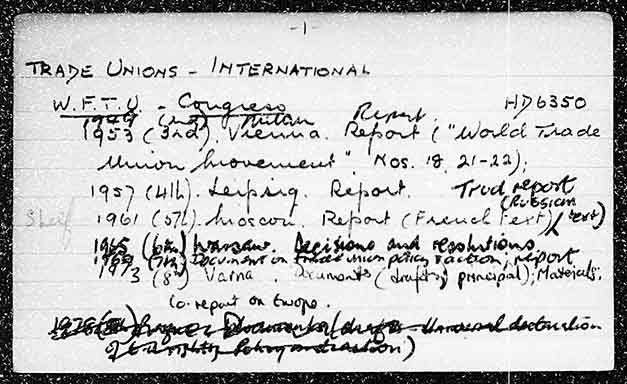 -1-
TRADE UNIONS - INTERNATIONAL
W.F.T.U. - Congress HD6350
1949 (2nd) Milan Report.
1953 (3rd). Vienna. Report ("World Trade
Union Movement" Nos. 18, 21-22);
1957 (4th). Leipzig Report. Trud report
(RUSSIAN
Shelf 1961 (5th). Moscow. Report (French text) / text)
1965 (6th) Warsaw. Decisions and resolutions
1969 (7th) Document on trade union policy & action; report
1973 (8th) Varna. Documents (drafts, principal); Materials;
report on
1978 Prague Documents declaration
policy and action)